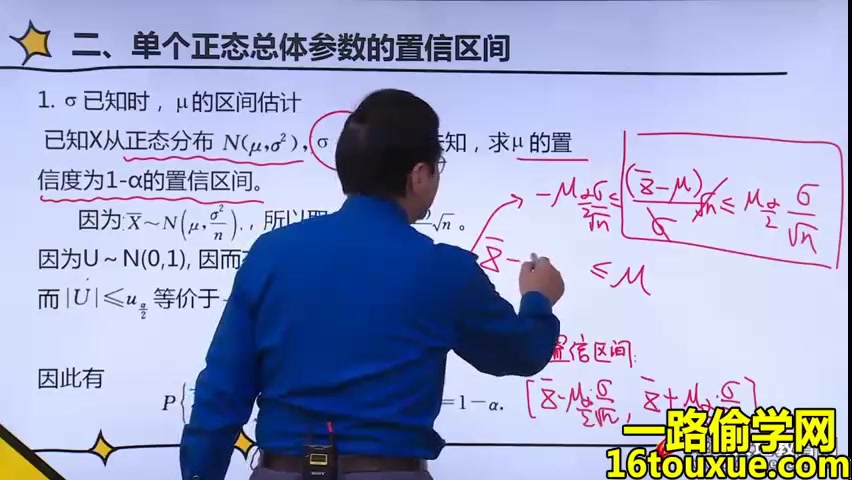 二、单个正态总体参数的置信区间
1. σ已知时，μ的区间估计
已知X从正态分布 N(μ,σ²), σ 未知，求μ的置
信度为1-α的置信区间。
因为 X̄~N(μ, σ²/n), 所以取 √n 。
因为U~N(0,1), 因而
而 |U|≤u_{α/2} 等价于
因此有
P{ =1-α.
-μ_{α/2} σ/√n ≤ (x̄-μ)/σ √n ≤ μ_{α/2} σ/√n
x̄- ≤μ
置信区间:
[x̄-μ_{α/2}·σ/√n, x̄+μ_{α/2}·σ/√n]
一路偷学网
16touxue.com
SONY